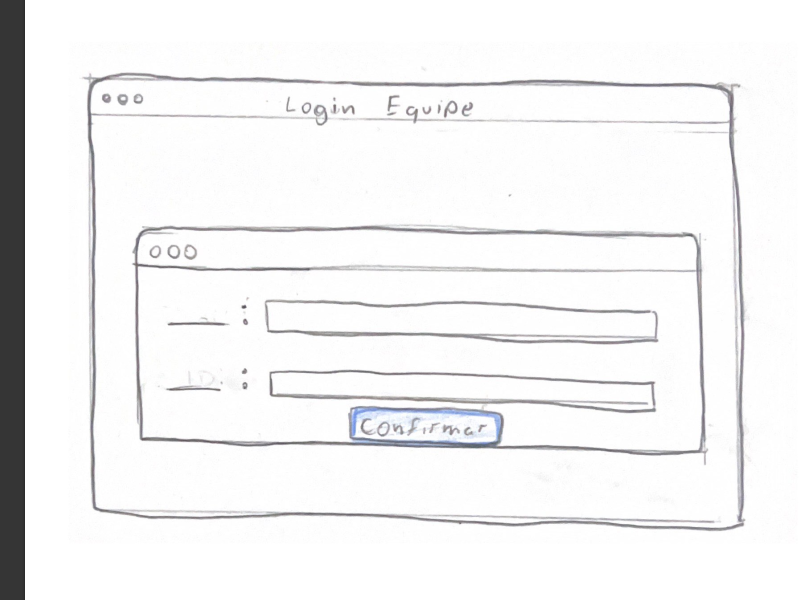 Login Equipe
Confirmar